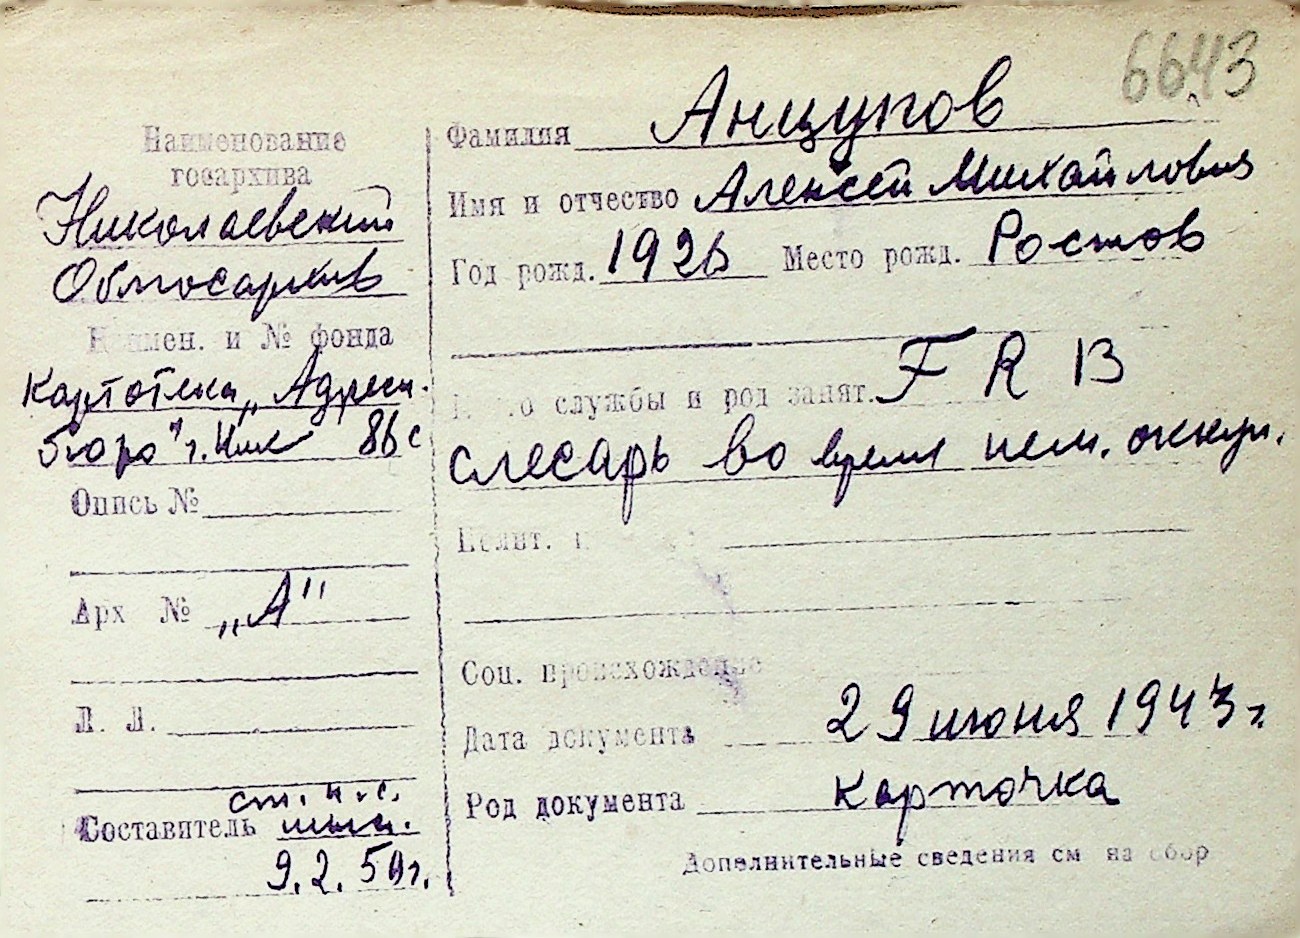 6643
Наименование
госархива
Николаевский
Облгосархив
Наимен. и № фонда
Картотека „Адресн.
бюро" г. Ник 86 с
Опись №
Арх №  „А"
Л. Л.
ст. н. с.
Составитель
9. 2. 50 г.
Фамилия Анцупов
Имя и отчество Алексей Михайлович
Год рожд. 1926 Место рожд. Ростов
службы и род занят. F R B
слесарь во время нем. оккуп.
Полит.
Соц. происхождение
Дата документа 29 июня 1943 г.
Род документа карточка
Дополнительные сведения см на обор